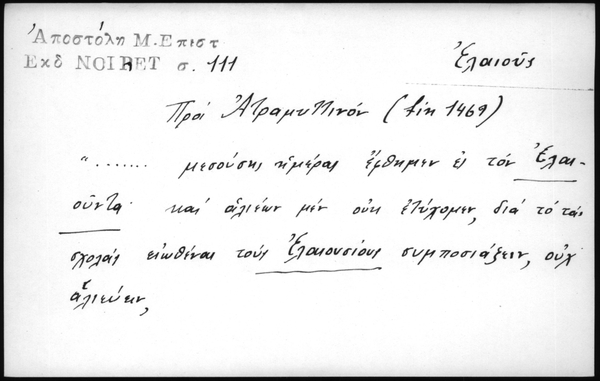 Ἀποστόλη Μ. Επιστ
Εκδ NOIRET σ. 111
Ἐλαιοῦς
Πρὸς Ἀτραμυτινόν (1469)
"....... μεσούσης ἡμέρας ἤρθημεν εἰς τόν Ἐλαι-
οῦντα καί ἁλιέων μέν οὐκ ἐτύχομεν, διά τό τάς
σχολάς εἰωθέναι τούς Ἐλαιουσίους συμποσιάζειν, οὐχ
ἁλιεύειν,